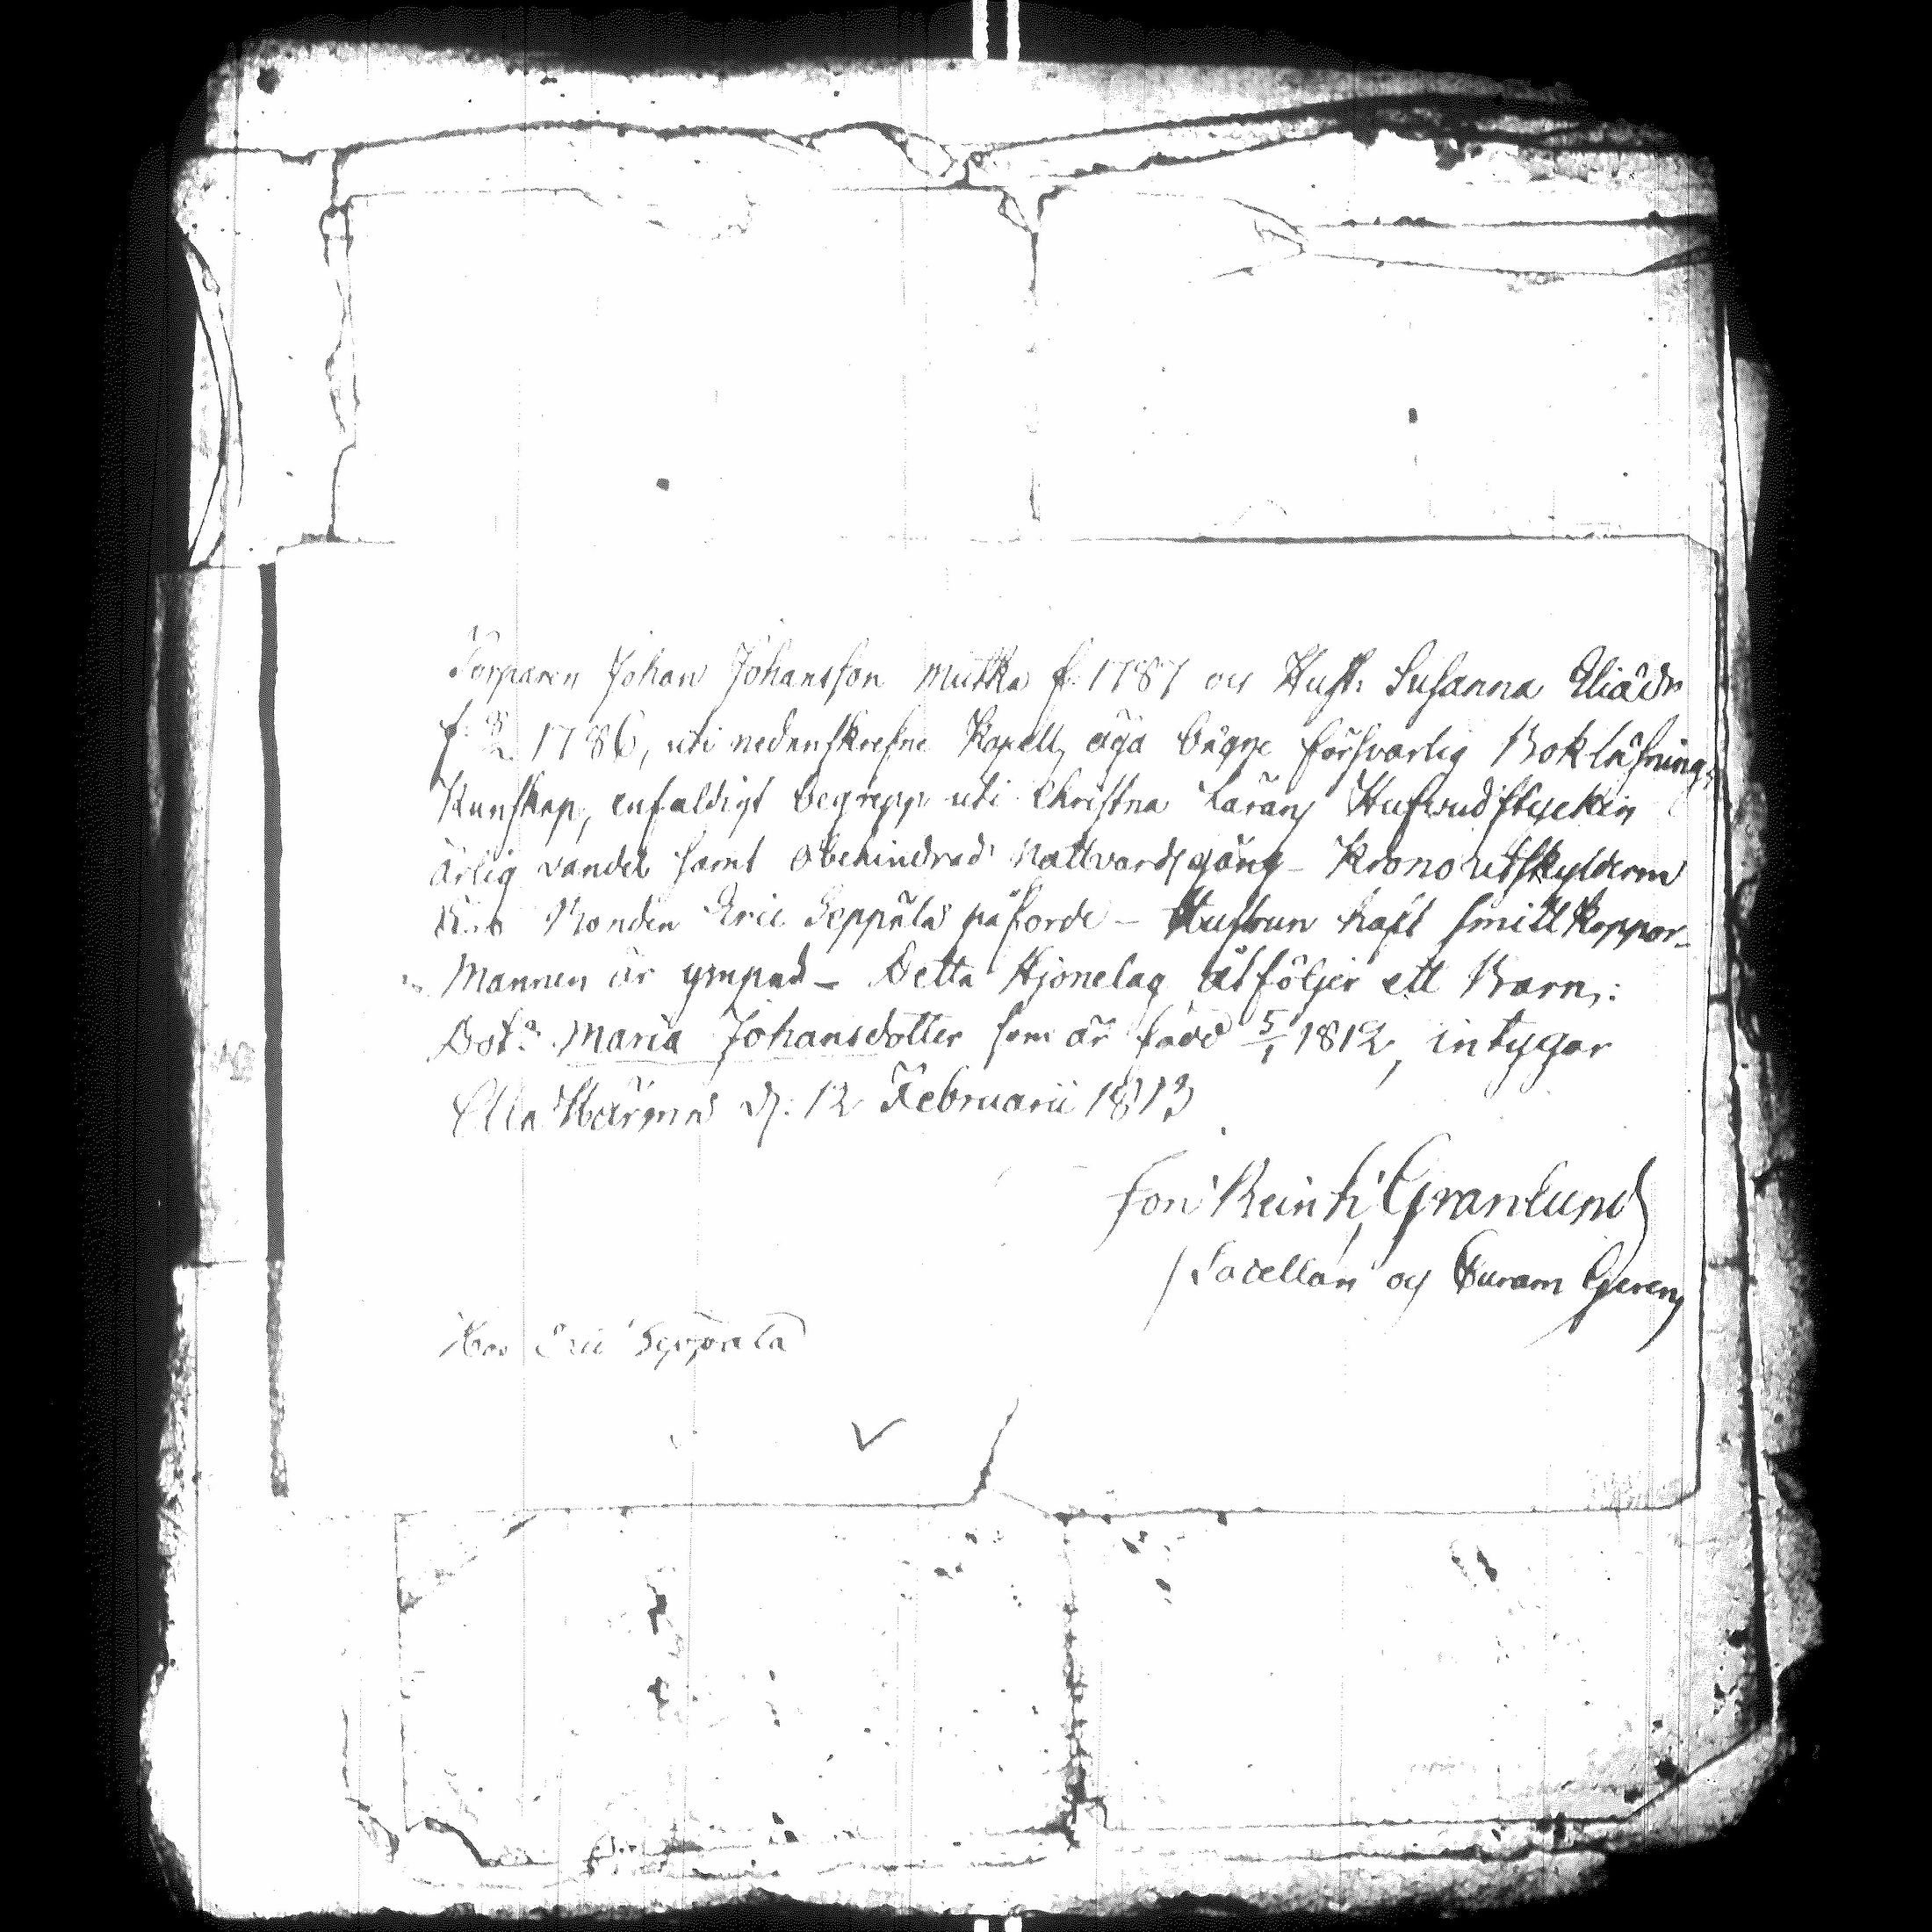 Torparen Johan Johansson Mutka f. 1787 och Hust: Susanna Eliædr
f. 1786, uti nedanskrefne Kapell, äga bägge försvarlig Bokläsnings
Kunskap, enfaldigt begrepp uti Christna Lärans Hufvudstycken
ärlig vandel samt obehindrad Nattvardsgång – Krono Utskylderne
Bonden Eric Seppälä påförde – Hustrun haft Smittkoppor –
Mannen är ympad – Detta Hjonelag åtföljer ett Barn:
Dotr. Maria Johansdotter som är född 5/1 1812, intygar
Ylla Härmä d: 12 Februarii 1813
Jon Reinh. Granlund
Sacellan och Curam Gerens
Hos Eric Seppälä